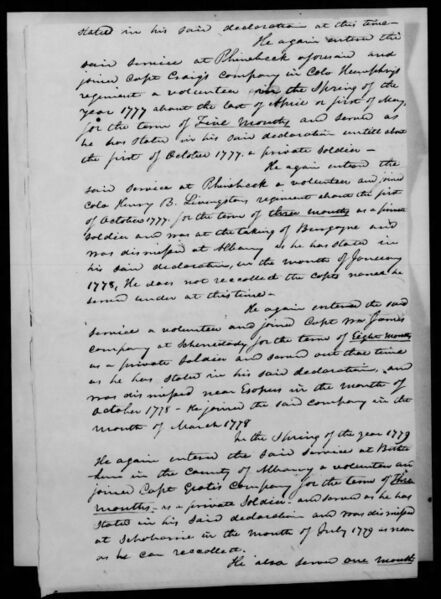 stated in his said declaration at this time—
He again entered the
said service at Rhinebeck aforesaid and
joined Capt Craig's Company in Colo Humphrys
regiment a volunteer in the Spring of the
year 1777 about the last of April or first of May,
for the term of Five Months and served as
he has stated in his said declaration untill about
the first of October 1777. a private Soldier—
He again entered the
said service at Rhinebeck a volunteer and joined
Colo Henry B. Livingstons regiment about the first
of October 1777. for the term of three months as a private
Soldier and was at the taking of Burgoyne and
was dismissed at Albany as he has stated in
his said declaration, in the month of January
1778, He does not recollect the Capts name he
served under at this time—
He again entered the said
service a volunteer and joined Capt Wm James
Company at Schenectady for the term of Eight Months
as a private Soldier and served out that time
as he has stated in his said declaration, and
was dismissed near Esopus in the month of
October 1778— He joined the said company in the
month of March 1778
In the Spring of the year 1779
He again entered the said service at Bethle
hem in the County of Albany a volunteer an
joined Capt Company for the term of Three
months. as a private Soldier. and served as he has
stated in his said declaration and was dismissed
at Schoharie in the month of July 1779 as near
as he can recollect.
He also served one month